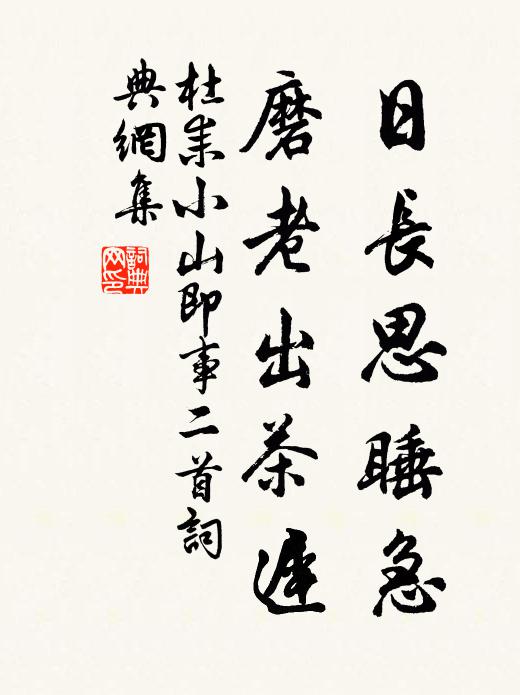 日長思睡急
磨老出茶遲
杜耒小山即事二首詞
典網集
詞典
网印